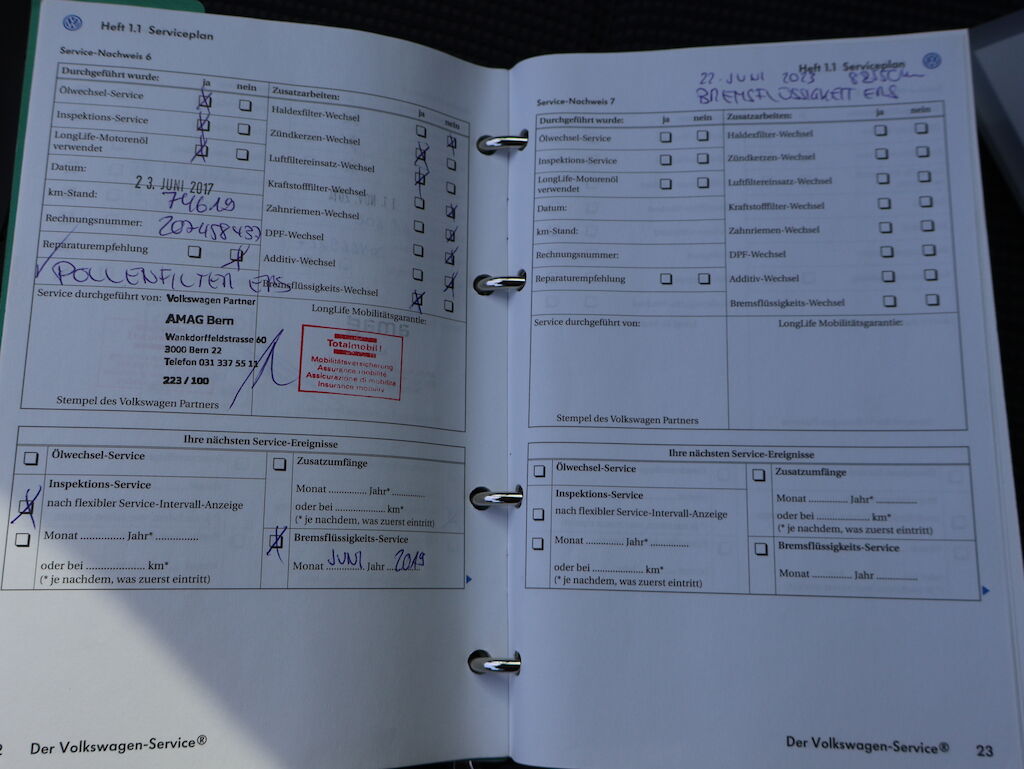 Heft 1.1 Serviceplan
Service-Nachweis 6
Durchgeführt wurde: ja nein
Ölwechsel-Service
Inspektions-Service
LongLife-Motorenöl
verwendet
Datum:
23. JUNI 2017
km-Stand: 74619
Rechnungsnummer: 207458437
Reparaturempfehlung
POLLENFILTER ERS
Zusatzarbeiten: ja nein
Haldexfilter-Wechsel
Zündkerzen-Wechsel
Luftfiltereinsatz-Wechsel
Kraftstofffilter-Wechsel
Zahnriemen-Wechsel
DPF-Wechsel
Additiv-Wechsel
Bremsflüssigkeits-Wechsel
Service durchgeführt von: Volkswagen Partner
AMAG Bern
Wankdorffeldstrasse 60
3000 Bern 22
Telefon 031 337 55 11
223 / 100
Stempel des Volkswagen Partners
LongLife Mobilitätsgarantie:
Totalmobil!
Mobilitätsversicherung
Assurance mobilité
Assicurazione di mobilità
Insurance mobility
Ihre nächsten Service-Ereignisse
Ölwechsel-Service
Inspektions-Service
nach flexibler Service-Intervall-Anzeige
Monat ............. Jahr* .............
oder bei .................... km*
(* je nachdem, was zuerst eintritt)
Zusatzumfänge
Monat ............. Jahr* ...........
oder bei .................... km*
(* je nachdem, was zuerst eintritt)
Bremsflüssigkeits-Service
Monat JUNI Jahr 2019
Der Volkswagen-Service®
Heft 1.1 Serviceplan
22. JUNI 2023
BREMSFLÜSSIGKEIT ERS
Service-Nachweis 7
Durchgeführt wurde: ja nein
Ölwechsel-Service
Inspektions-Service
LongLife-Motorenöl
verwendet
Datum:
km-Stand:
Rechnungsnummer:
Reparaturempfehlung
Zusatzarbeiten: ja nein
Haldexfilter-Wechsel
Zündkerzen-Wechsel
Luftfiltereinsatz-Wechsel
Kraftstofffilter-Wechsel
Zahnriemen-Wechsel
DPF-Wechsel
Additiv-Wechsel
Bremsflüssigkeits-Wechsel
Service durchgeführt von:
Stempel des Volkswagen Partners
LongLife Mobilitätsgarantie:
Ihre nächsten Service-Ereignisse
Ölwechsel-Service
Inspektions-Service
nach flexibler Service-Intervall-Anzeige
Monat ............. Jahr* .............
oder bei .................... km*
(* je nachdem, was zuerst eintritt)
Zusatzumfänge
Monat ............. Jahr* ...........
oder bei .................... km*
(* je nachdem, was zuerst eintritt)
Bremsflüssigkeits-Service
Monat ............. Jahr .............
Der Volkswagen-Service® 23